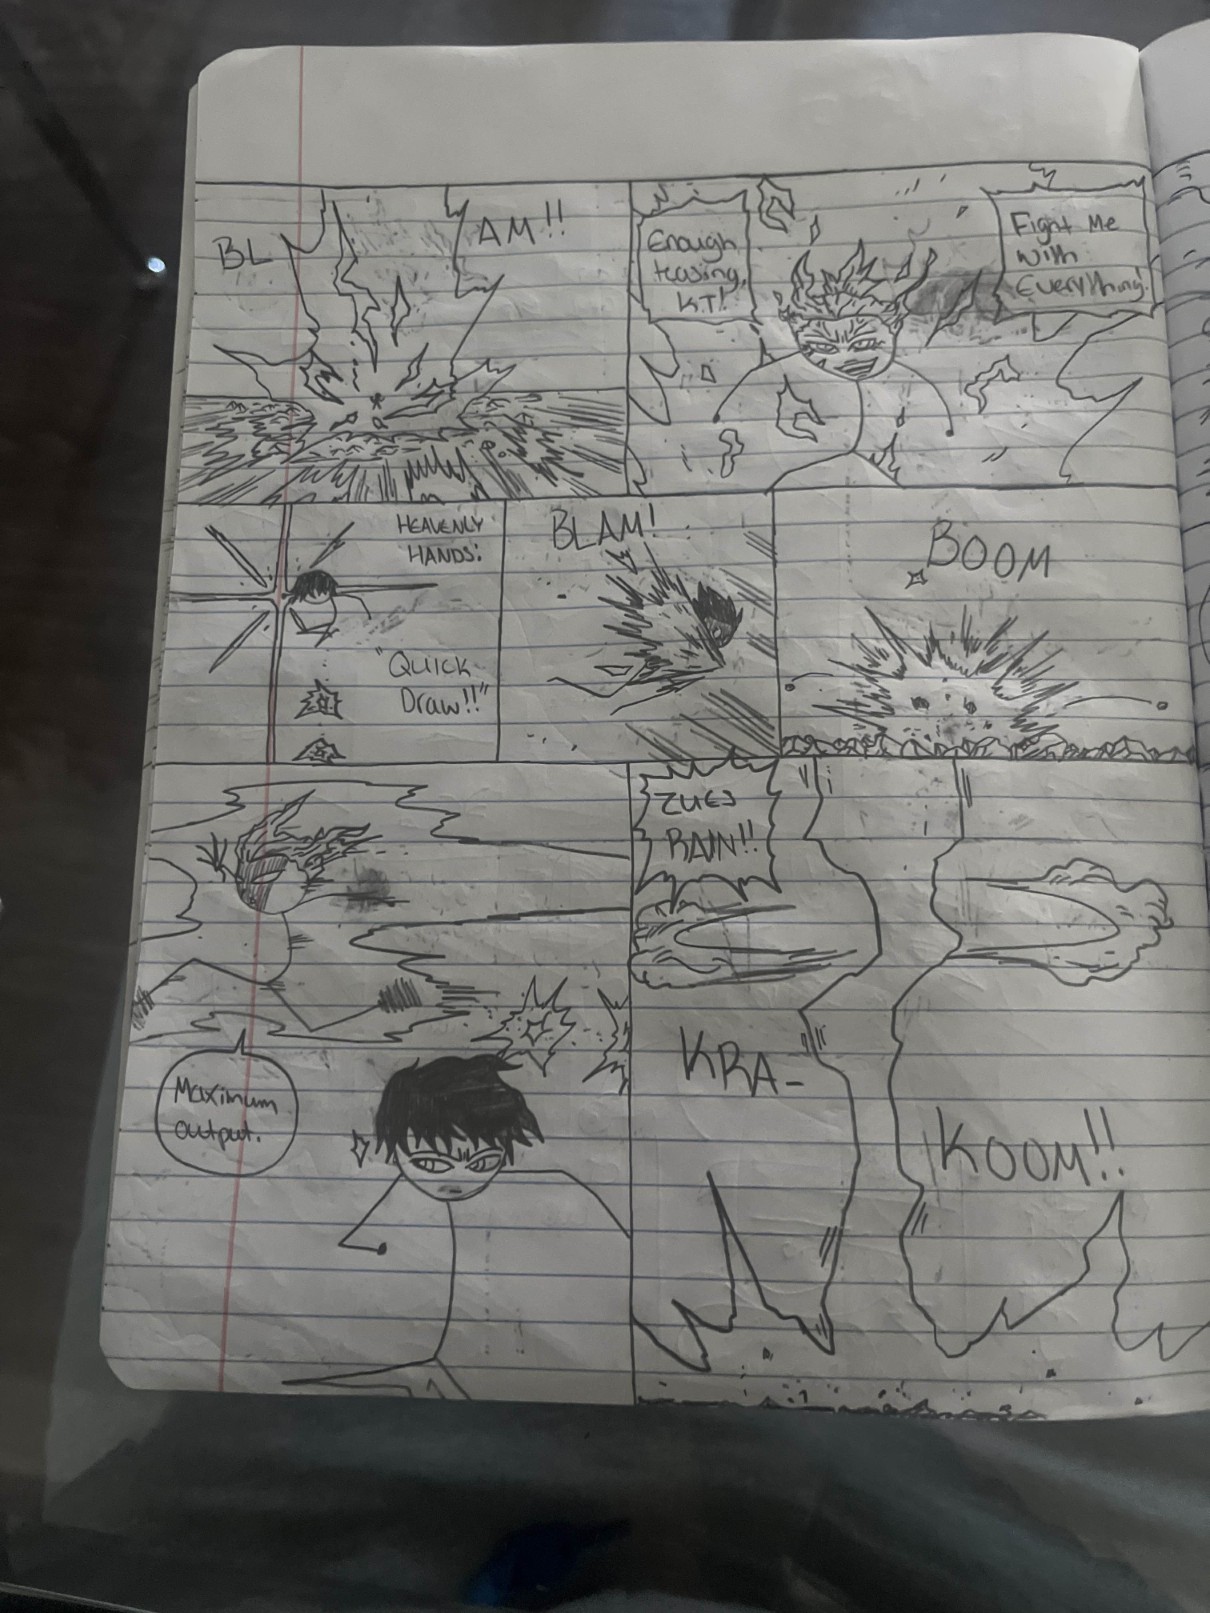 BL
AM!!
Enough
teasing,
K.T!
Fight Me
With
Everything!
HEAVENLY
HANDS:
"QUICK
Draw!!"
BLAM!
BOOM
Maximum
output.
ZUES
RAIN!!
KRA-
KOOM!!